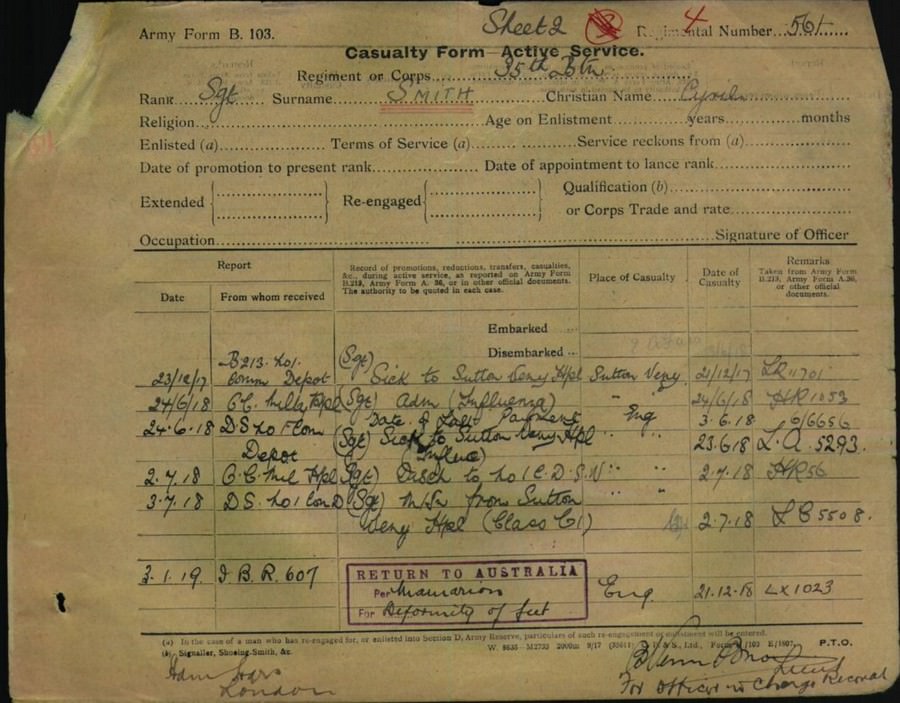 Sheet 2 4
Army Form B. 103. Regimental Number 561
Casualty Form—Active Service.
Regiment or Corps 35th Btn
Rank Sgt Surname SMITH Christian Name Cyril
Religion Age on Enlistment years months
Enlisted (a) Terms of Service (a) Service reckons from (a)
Date of promotion to present rank Date of appointment to lance rank
Extended Re-engaged Qualification (b)
or Corps Trade and rate
Occupation Signature of Officer
Report
Date From whom received
Record of promotions, reductions, transfers, casualties, &c., during active service, as reported on Army Form B.213, Army Form A. 36, or in other official documents. The authority to be quoted in each case.
Place of Casualty
Date of Casualty
Remarks Taken from Army Form B.213, Army Form A.36, or other official documents.
Embarked
Disembarked
B213. No1. (Sgt)
23/12/17 Comm Depot Sick to Sutton Veny Hpl Sutton Veny 21/12/17 LR 11701
24/6/18 (Sgt) Adm (Influenza) " 24/6/18 HR 1053
Date of Last Payment Eng 3.6.18 6/6656
24.6.18 DS No 1 Com Depot (Sgt) Sick to Sutton Veny Hpl (Influe) " " 23.6.18 L.A. 5293.
2.7.18 O.C. Mil Hpl (Sgt) Disch to No 1 C.D. S.V " " 2.7.18 HR56
3.7.18 DS. No 1 Con D (Sgt) M/In from Sutton " "
Veny Hpl (Class C1) 2.7.18 LC 5508.
3.1.19. I.B.R. 607 RETURN TO AUSTRALIA
Per Mamarion Eng. 21.12.18 LX1023
For Deformity of feet
(a) In the case of a man who has re-engaged for, or enlisted into Section D, Army Reserve, particulars of such re-engagement or enlistment will be entered.
(b) Signaller, Shoeing-Smith, &c. P.T.O.
London
For Officer in Charge Records